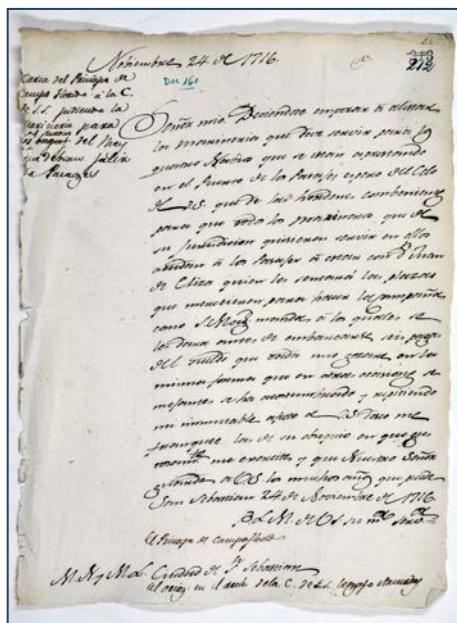 Noviembre 24 de 1716.
212
Doc 160
Carta del Principe de
Campo florido à la C.
de S.S. pidiendo la
marineria para
del Rey
que debian salir
de Pasages
Señor mio. Deviendose empezar à alistar
la marineria que deve servir para los
que se estan aprestando
en el Puerto de los Pasajes espero del Celo
de VS. que de las hordenes combenientes
para que todos los marineros que de
su Jurisdicion quisieren servir en ellos
acudan à los Pasajes à estar con Dn Juan
de Eliza quien les sentará las plazas
que merecieren para hacer la campaña
como S. Magd manda à los quales se
les dara antes de embarcarse seis pagas
del sueldo que cada uno gozare en la
misma forma que en otras ocasiones se
mejantes se ha acostumbrado y repitiendo
mi inmutable afecto à VS. deseo me
franquee las de su obsequio en que
me exercite y que Nuestro Señor
guarde à VS. los muchos años que puede
San Sebastian 24 de Noviembre de 1716
B L M de VS su mor servor
El Principe de Campoflorido
M. N. y M. L. Ciudad de Sn Sebastian
el orig. en el arch. de la C. de S.S. legajo